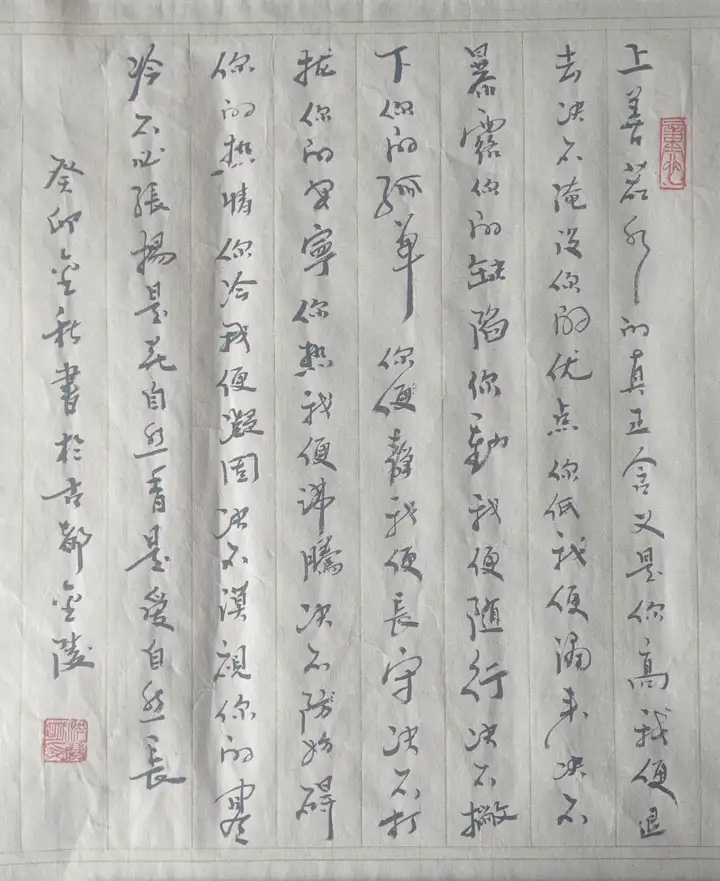 上善若水的真正含义是你高我便退
去决不淹没你的优点你低我便涌来决不
暴露你的缺陷你動我便随行决不撇
下你的孤单你便静我便長守决不打
扰你的安寧你热我便沸騰决不防妨碍
你的热情你冷我便凝固决不漠視你的寒
冷不必張揚是花自然香是愛自然長
癸卯金秋書於古都金陵